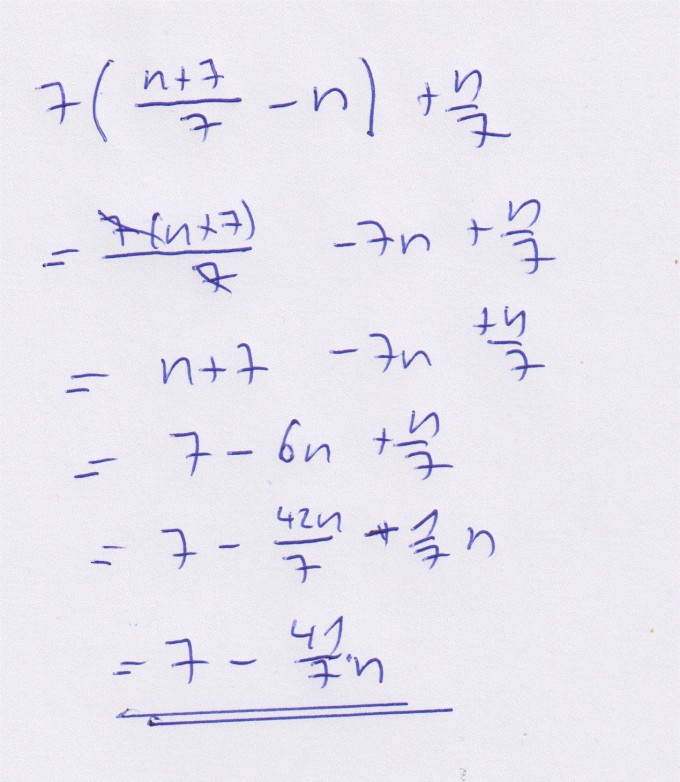 7( (n+7)/7 - n ) + n/7
= 7(n+7)/7 - 7n + n/7
= n+7 - 7n + n/7
= 7 - 6n + n/7
= 7 - 42n/7 + 1/7 n
= 7 - 41/7 · n